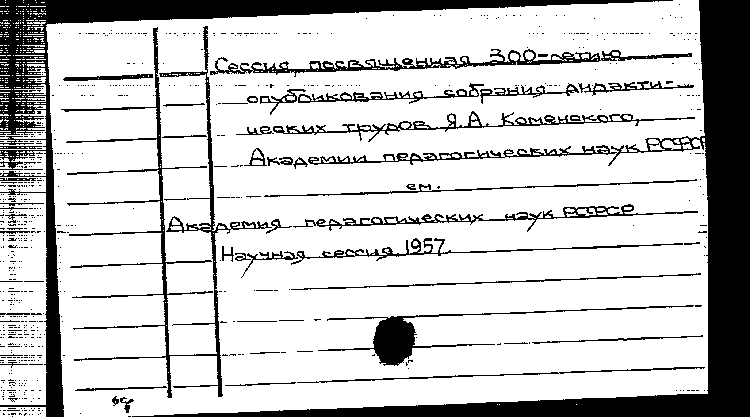 Сессия, посвященная 300-летию
опубликования собрания дидакти-
ческих трудов Я.А. Коменского,
Академии педагогических наук РСФСР
см.
Академия педагогических наук РСФСР
Научная сессия, 1957